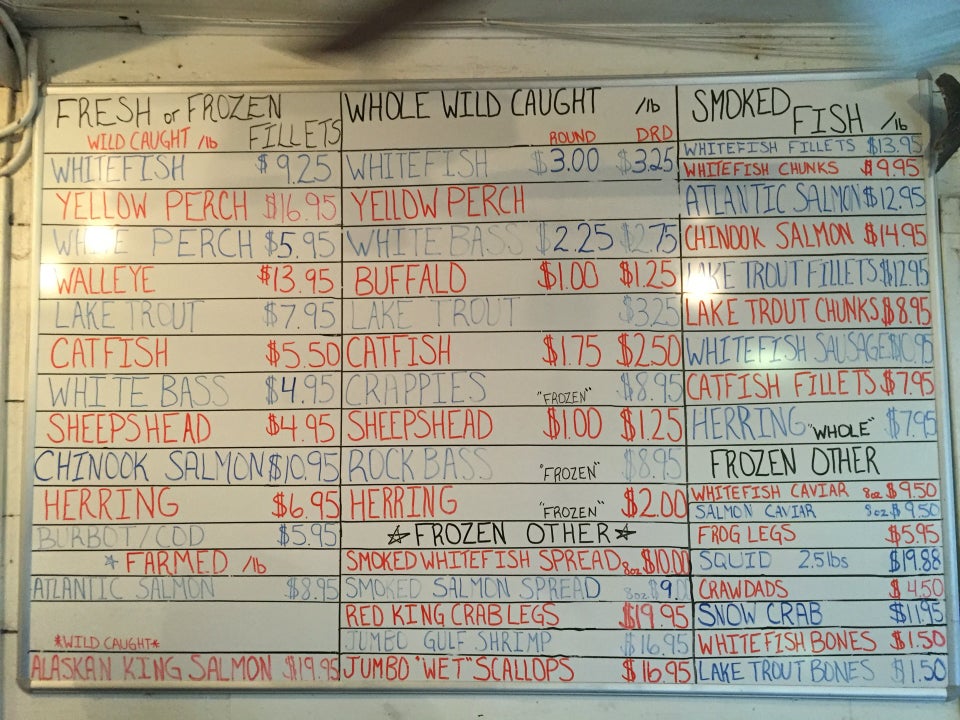 FRESH or FROZEN
FILLETS
WILD CAUGHT /lb
WHITEFISH $9.25
YELLOW PERCH $16.95
WHITE PERCH $5.95
WALLEYE $13.95
LAKE TROUT $7.95
CATFISH $5.50
WHITE BASS $4.95
SHEEPSHEAD $4.95
CHINOOK SALMON $10.95
HERRING $6.95
BURBOT/COD $5.95
* FARMED /lb
ATLANTIC SALMON $8.95
*WILD CAUGHT*
ALASKAN KING SALMON $19.95
WHOLE WILD CAUGHT /lb
ROUND DRD
WHITEFISH $3.00 $3.25
YELLOW PERCH
WHITE BASS $2.25 $2.75
BUFFALO $1.00 $1.25
LAKE TROUT $3.25
CATFISH $1.75 $2.50
CRAPPIES "FROZEN" $8.95
SHEEPSHEAD $1.00 $1.25
ROCK BASS "FROZEN" $8.95
HERRING "FROZEN" $2.00
☆ FROZEN OTHER ☆
SMOKED WHITEFISH SPREAD 8oz $10.00
SMOKED SALMON SPREAD 8oz
RED KING CRAB LEGS $19.95
JUMBO GULF SHRIMP $16.95
JUMBO "WET" SCALLOPS $16.95
SMOKED
FISH /lb
WHITEFISH FILLETS $13.95
WHITEFISH CHUNKS $9.95
ATLANTIC SALMON $12.95
CHINOOK SALMON $14.95
LAKE TROUT FILLETS $12.95
LAKE TROUT CHUNKS $8.95
WHITEFISH SAUSAGE $10.95
CATFISH FILLETS $7.95
HERRING "WHOLE" $7.95
FROZEN OTHER
WHITEFISH CAVIAR 8oz $9.50
SALMON CAVIAR 8oz $9.50
FROG LEGS $5.95
SQUID 2.5lbs $19.88
CRAWDADS $4.50
SNOW CRAB $11.95
WHITEFISH BONES $1.50
LAKE TROUT BONES $1.50